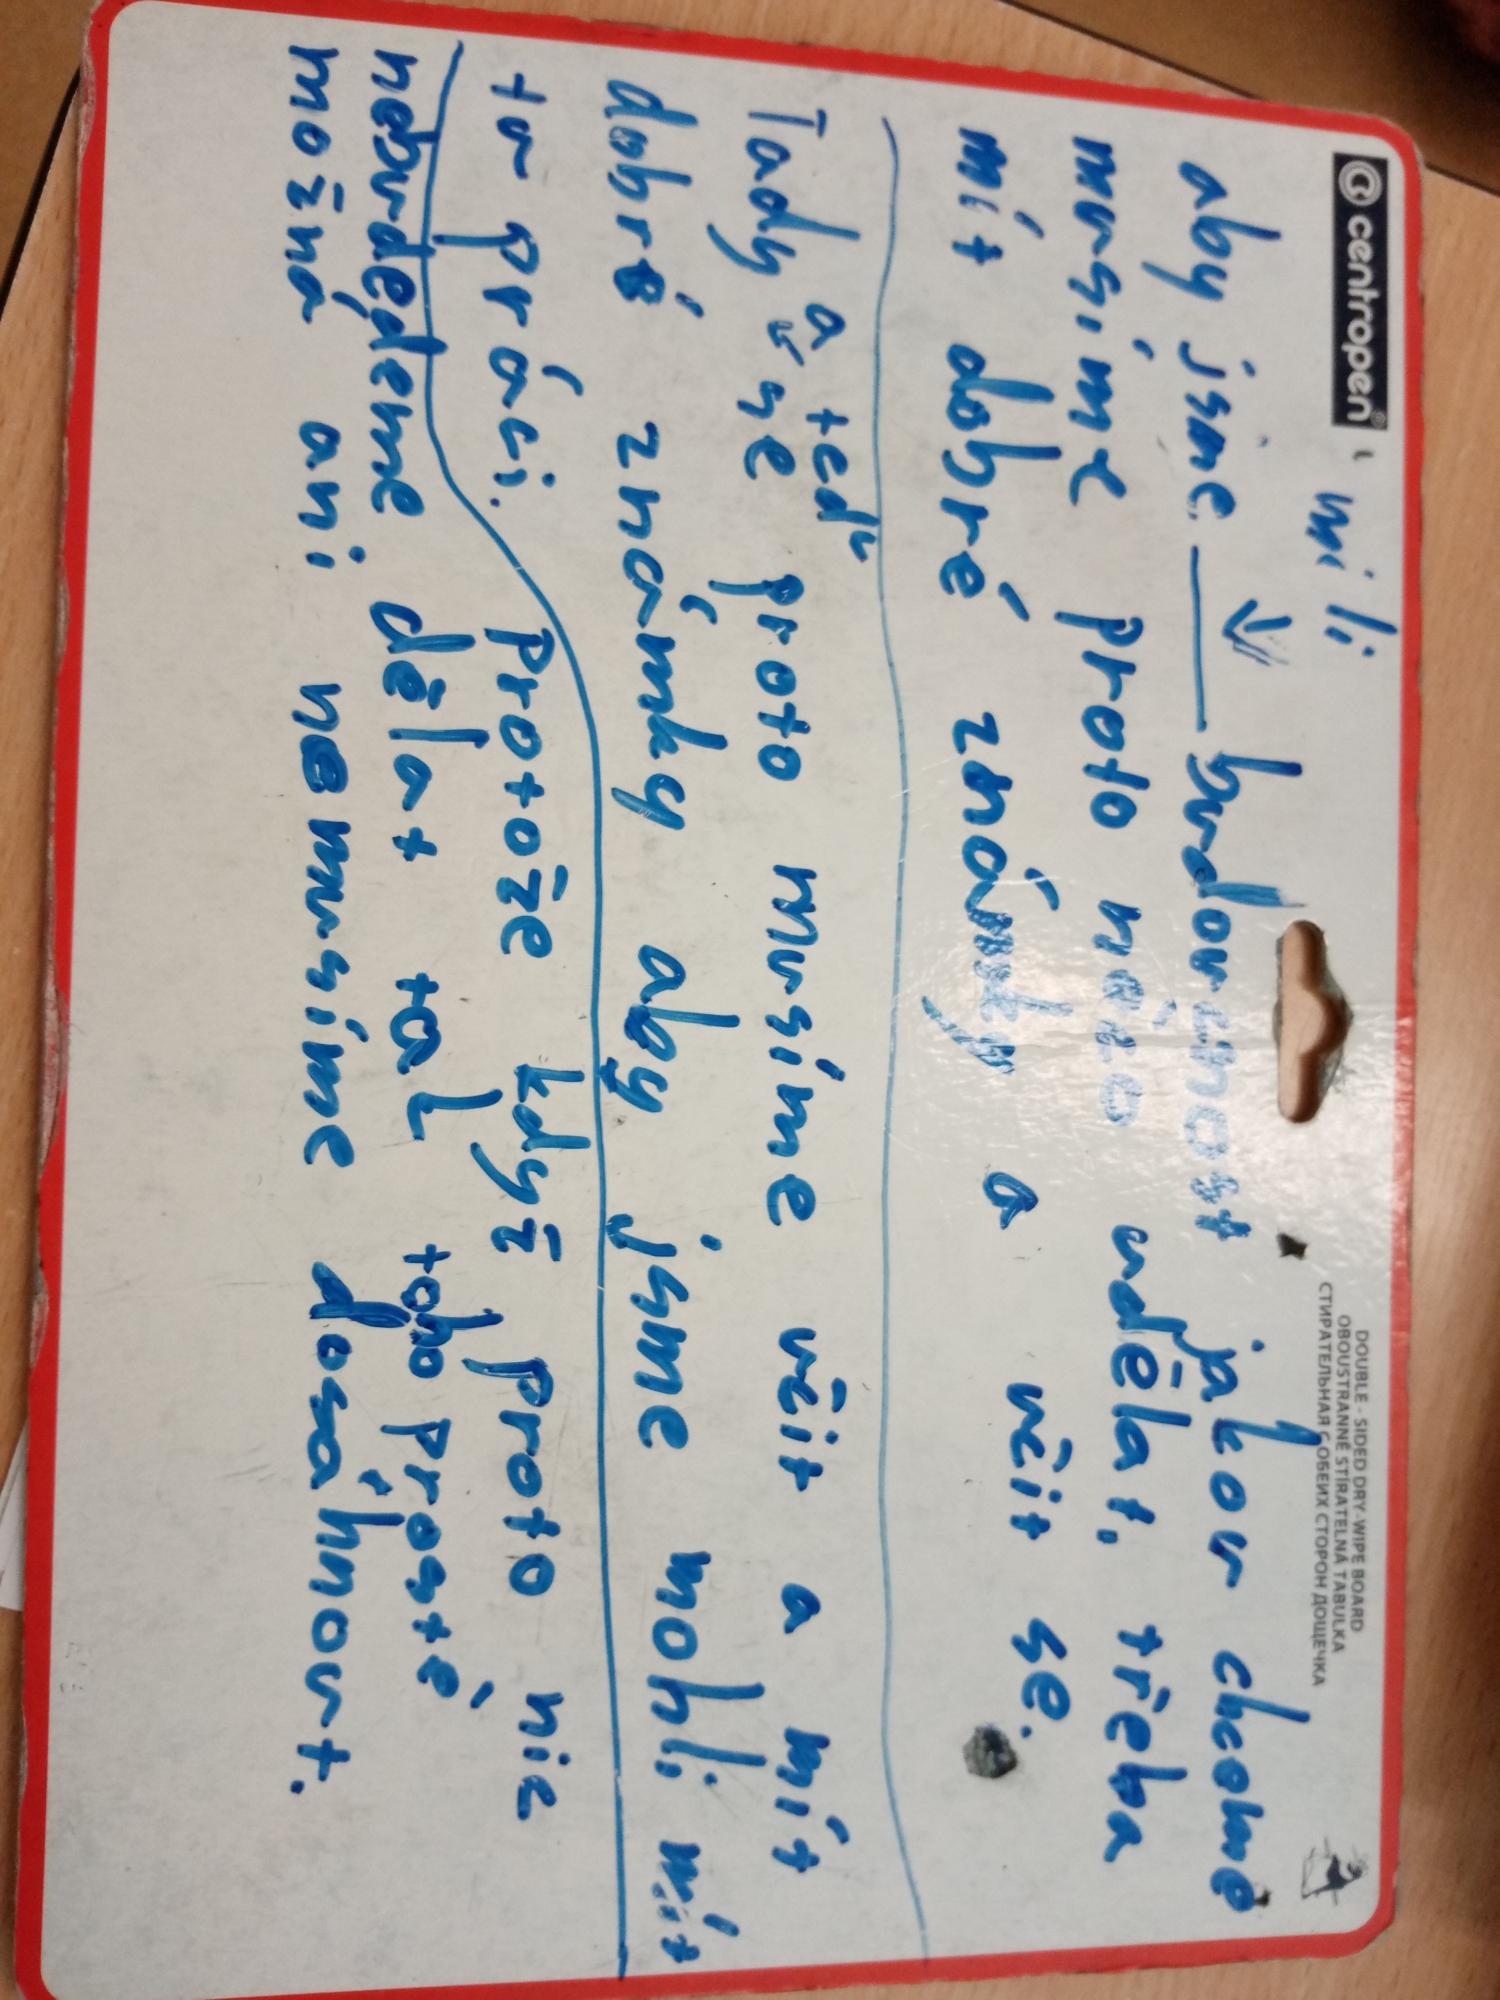 centropen
DOUBLE - SIDED DRY-WIPE BOARD
OBOUSTRANNĚ STÍRATELNÁ TABULKA
СТИРАТЕЛЬНАЯ С ОБЕИХ СТОРОН ДОЩЕЧКА
měli
aby jsme budoucnost jakou chceme
musíme proto něco udělat, třeba
mít dobré známky a učit se.
a teď
Tady se proto musíme učit a mít
dobré známky aby jsme mohli mít
tu práci. Protože když proto nic
nebudeme dělat tak toho prostě
možná ani nemusíme dosáhnout.